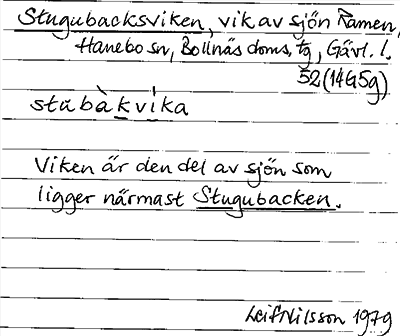 Stugubacksviken, vik av sjön Ramen,
Hanebo sn, Bollnäs doms. tg, Gävl. l.
52(14G5g)
stubàkvíka
Viken är den del av sjön som
ligger närmast Stugubacken.
Leif Nilsson 1979